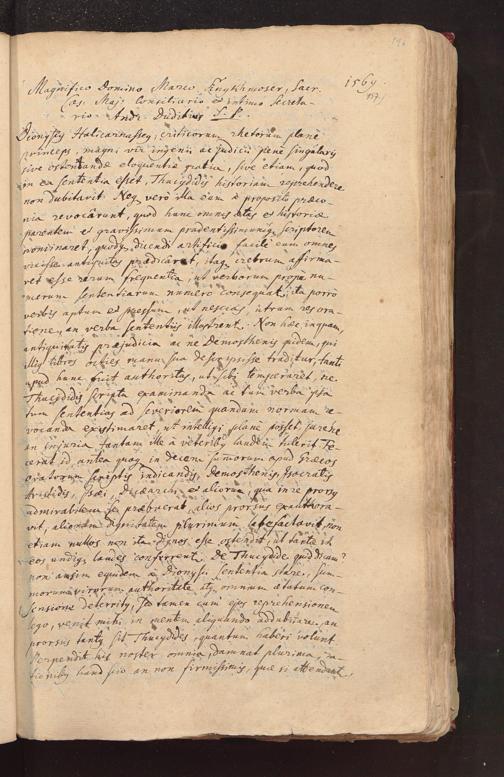 1569.
157
Magnifico Domino Marco Singkhmoser, Sacr.
Cæs. Maj. Consiliario et intimo Secreta-
rio Andr. Dudithius S. P.
Dionysius Halicarnasseus, criticorum rhetorum plane
princeps, magni vir ingenii ac judicii pene singularis
sive ostentandæ eloquentiæ gratia, sive etiam, quod
in ea sententia esset, Thucydidis historiam reprehendere
non dubitavit. Neq vero illa eum a proposito præco-
nia revocârunt, quod hunc omnis ætas et historiæ
parentem et gravissimum prudentissimumq scriptorem
nominaret, quodq dicendi artificio facile eum omnes
vicisse antiquitas prædicâret, itaq crebrum affirma-
ret esse rerum frequentia, ut verborum prope nu-
merum sententiarum numero consequat, ita porro
verbis aptum et pressum, ut nescias, utrum res ora-
tione, an verba sententiis illustrent. Non hæc inquam,
antiquitatis præjudicia ac ne Demosthenis quidem, qui
illius libros octies manu sua descripsisse traditur, tanti
apud hunc fuit authoritas, ut sibi temperaret, ne
Thucydidis scripta examinanda ac tum verba ipsa
tum sententias ad severiorem quandam normam re-
vocanda existimaret, ut intelligi plane posset jurene
an injuria tantam ille a veteribus laudem tulerit. Fe-
cerat id antea quoq in decem summorum apud Græcos
oratorum scriptis judicandis, Demosthenis, Isocratis
Aristidis, Isæi, Dinarchi et aliorum, qua in re prorsus
admirabilem se præbuerat, alios prorsus exauthora-
vit, aliorum dignitatem plurimum labefactavit, non
etiam nullos non ita dignos esse ostendit, ut tante in
eos undiq laudes conferrent. De Thucydide quid dicam?
non ausim equidem a Dionysii sententia stare, sum-
morum virorum authoritate atq omnium ætatum con-
sensione deterritus, sed tamen cum ejus reprehensionem
lego, venit mihi in mentem aliquando addubitare, an
prorsus tantus sit Thucydides, quantum haberi volunt.
Perpendit hic noster omnia, damnat plurima, ra-
tionibus haud scio an non firmissimis, quæ si attendant,